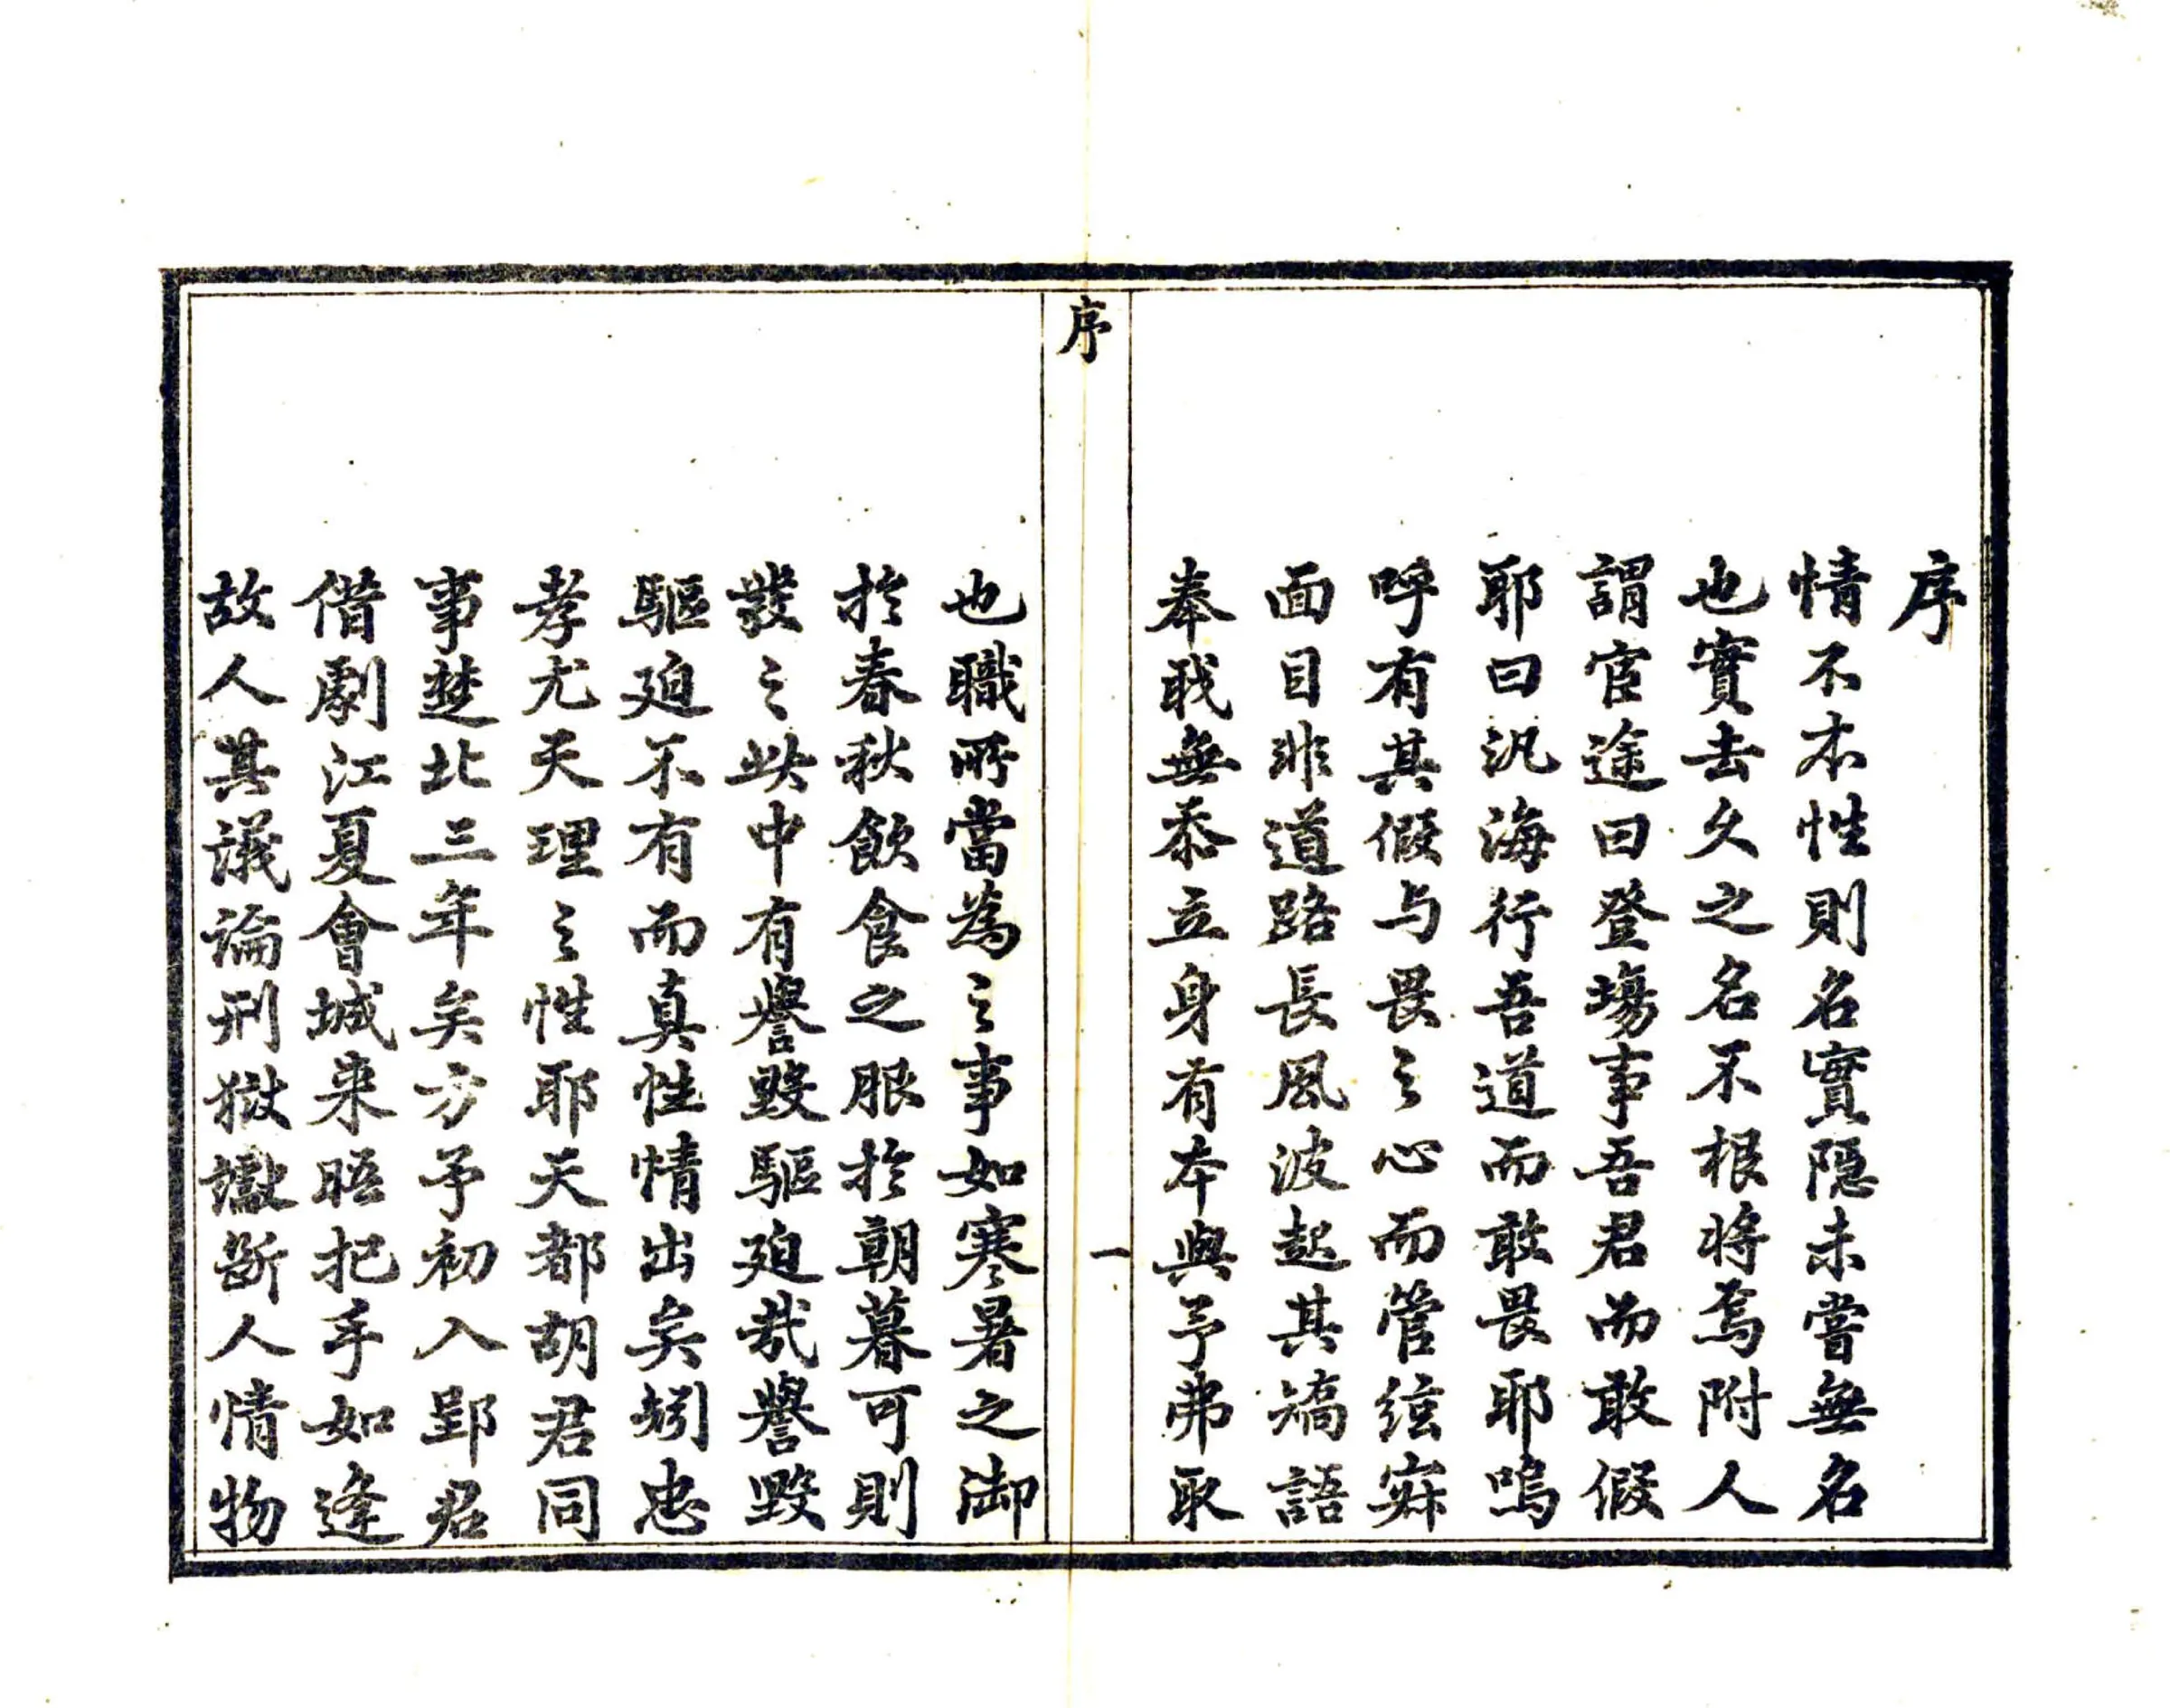 序
情不本性則名實隱未嘗無名
也實去久之名不根將焉附人
謂宦途曰登場事吾君而敢假
耶曰汎海行吾道而敢畏耶嗚
呼有其假与畏之心而管絃寂
面目非道路長風波起其矯語
奉職無忝立身有本與予弗取
序
一
也職所當為之事如寒暑之御
於春秋飲食之服於朝暮可則
發之此中有譽毀驅廹哉譽毀
驅廹不有而真性情出矣矧忠
孝尤天理之性耶天都胡君同
事楚北三年矣方予初入郢君
借劇江夏會城来晤把手如逢
故人其議論刑獄讞斷人情物